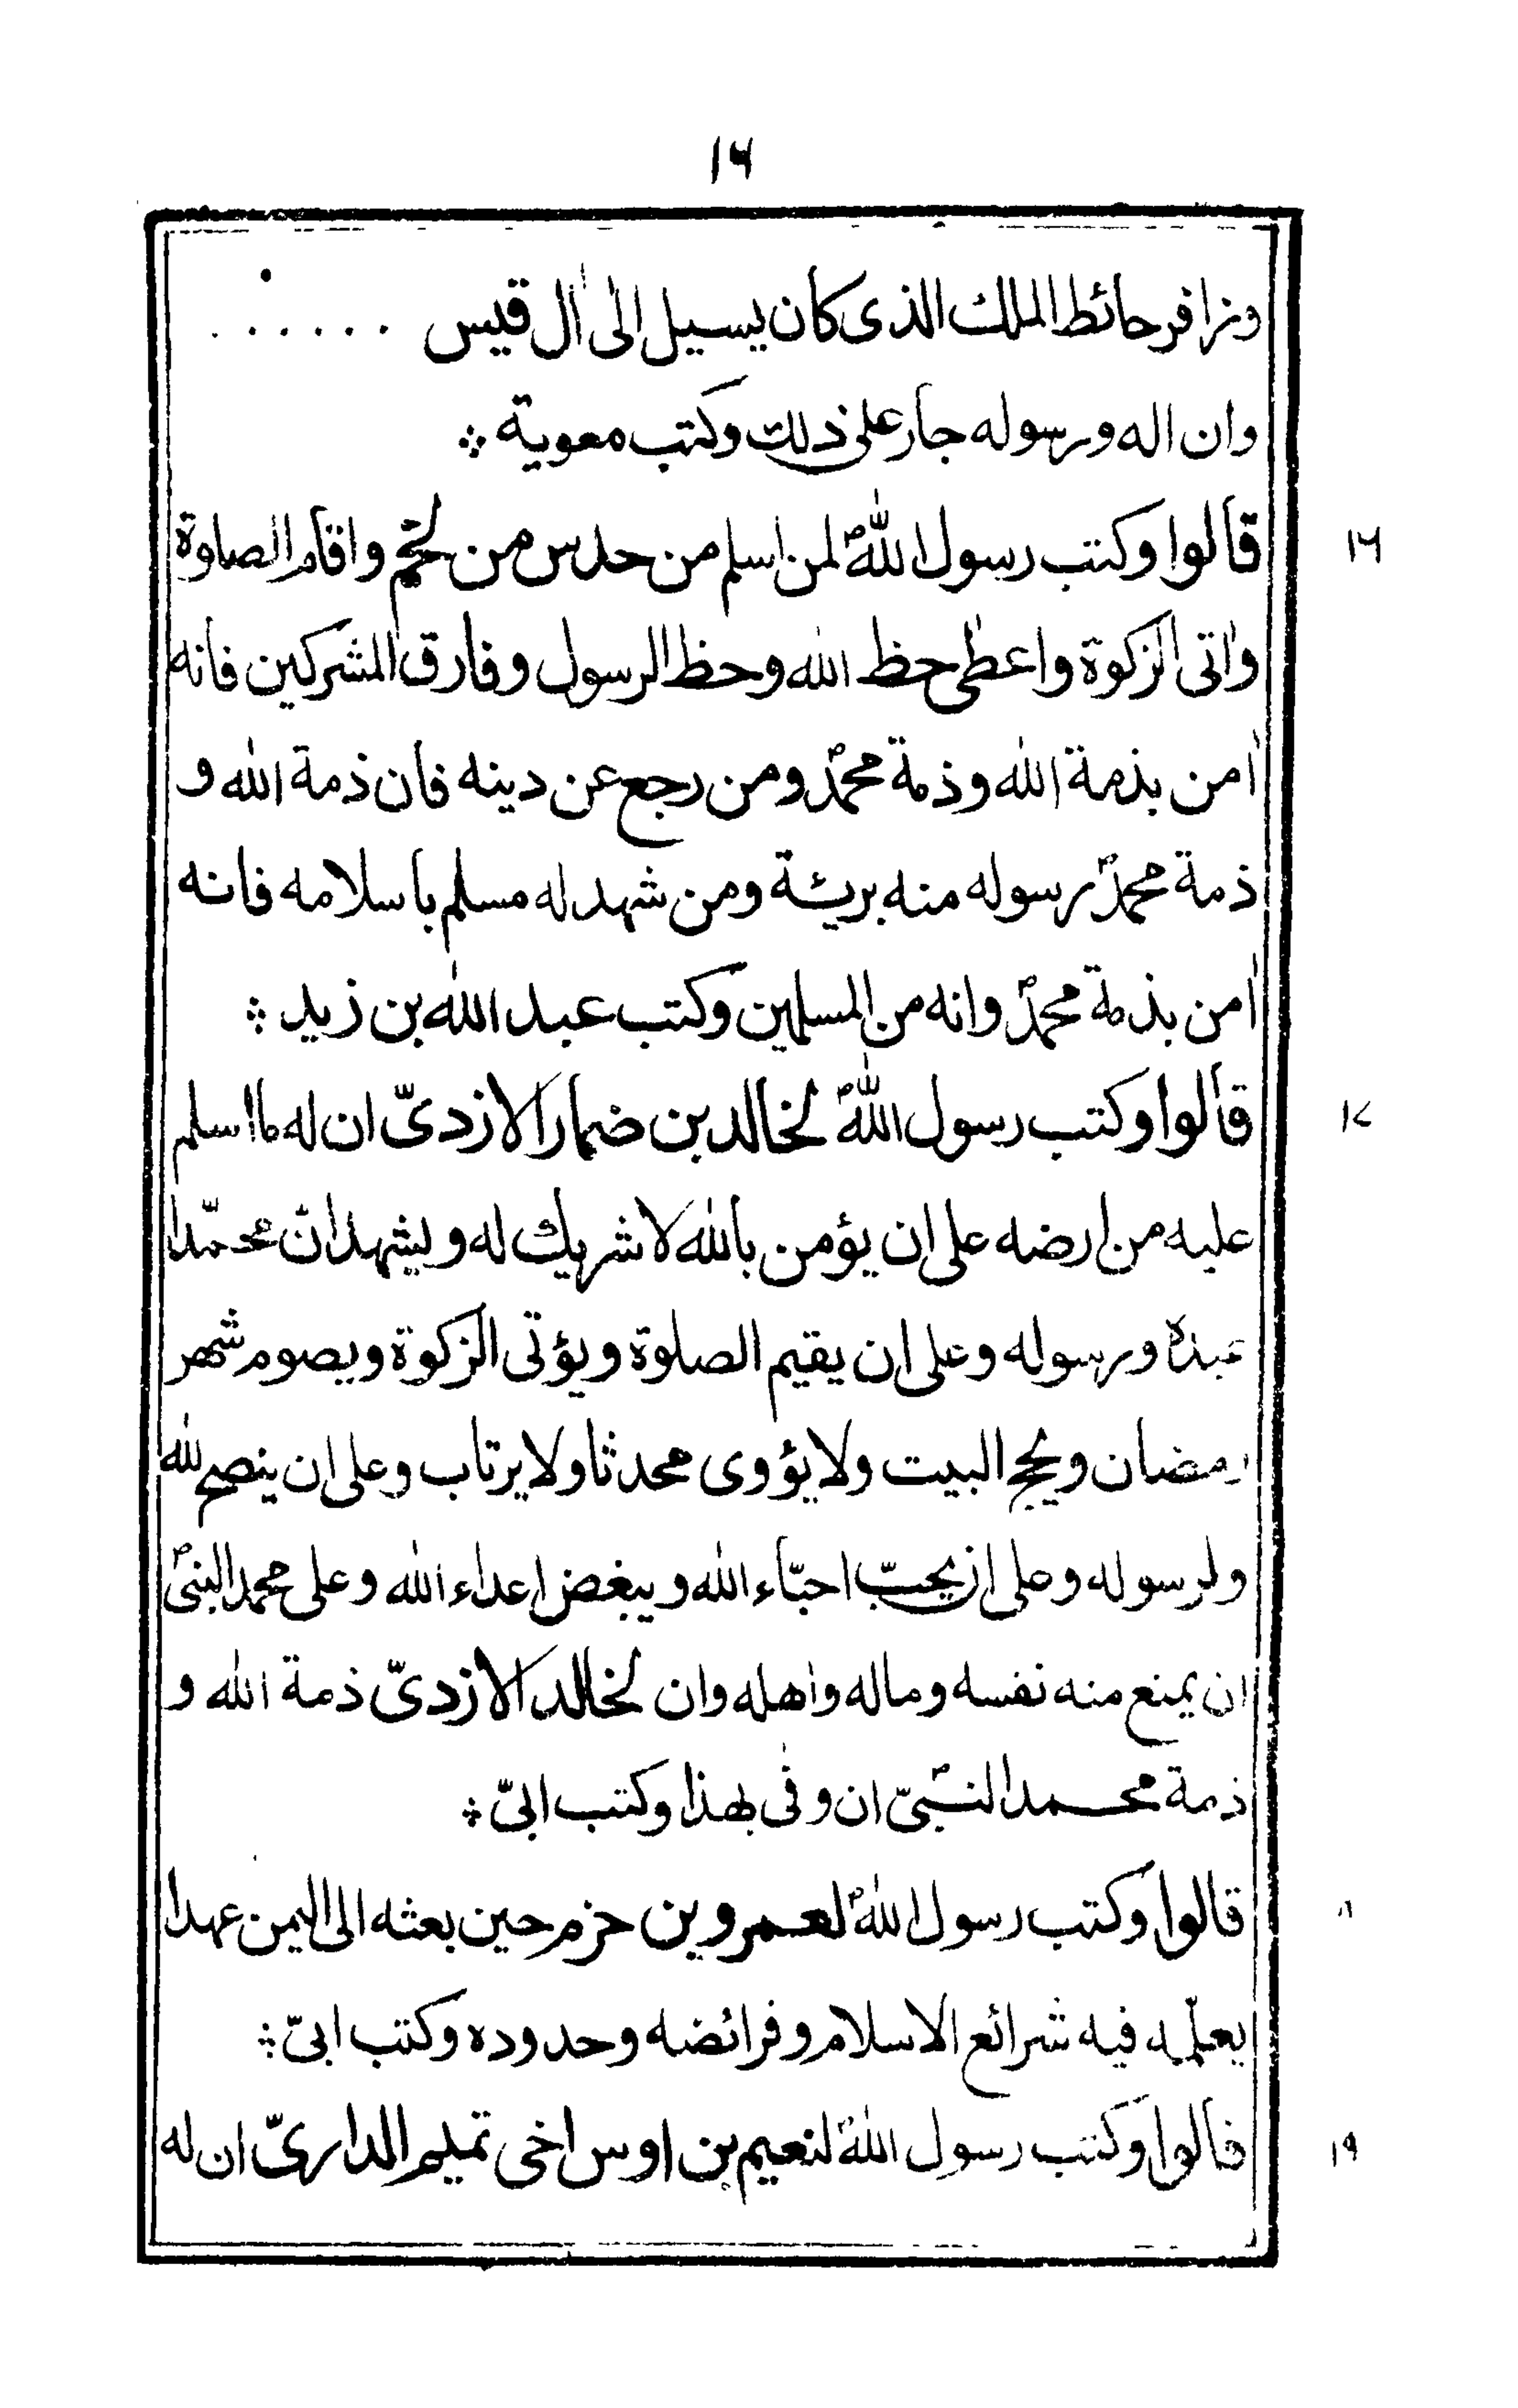 ١٦
وزافر حائط الملك الذى كان يسيل الىٰ اٰل قيس . . . . . .
وان اله ورسوله جار على ذلك وكتب معوية ⁘
١٦ قالوا وكتب رسول اللهؐ لمن اسلم من حدس من لخم واقام الصلوة
واٰتى الزكوة واعطى حظ الله وحظ الرسول وفارق المشركين فانه
اٰمن بذمة الله وذمة محمدؐ ومن رجع عن دينه فان ذمة الله و
ذمة محمدؐ رسوله منه بريئة ومن شهد له مسلم باسلامه فانه
اٰمن بذمة محمدؐ وانه من المسلمين وكتب عبد الله بن زيد ⁘
١٧ قالوا وكتب رسول اللهؐ لخالد بن ضمار الازدىّ ان له ما اسلم
عليه من ارضه على ان يؤمن بالله لا شريك له ويشهد انّ محمّدا
عبدهٗ ورسوله وعلى ان يقيم الصلوة ويؤتى الزكوة ويصوم شهر
رمضان ويحج البيت ولا يؤوى محدثا ولا يرتاب وعلى ان ينصح لله
ولرسوله وعلى ان يحبّ احبّاء الله ويبغض اعداء الله وعلى محمد النبىؐ
ان يمنع منه نفسه وماله واهله وان لخالد الازدىّ ذمة الله و
ذمة محمد النبىّؐ ان وفى بهذا وكتب ابىّ ⁘
قالوا وكتب رسول اللهؐ لعمرو بن حزم حين بعثه الى اليمن عهدا
يعلّمه فيه شرائع الاسلام وفرائضه وحدوده وكتب ابىّ ⁘
١٩ قالوا وكتب رسول اللهؐ لنعيم بن اوس اخى تميم الدارىّ ان له